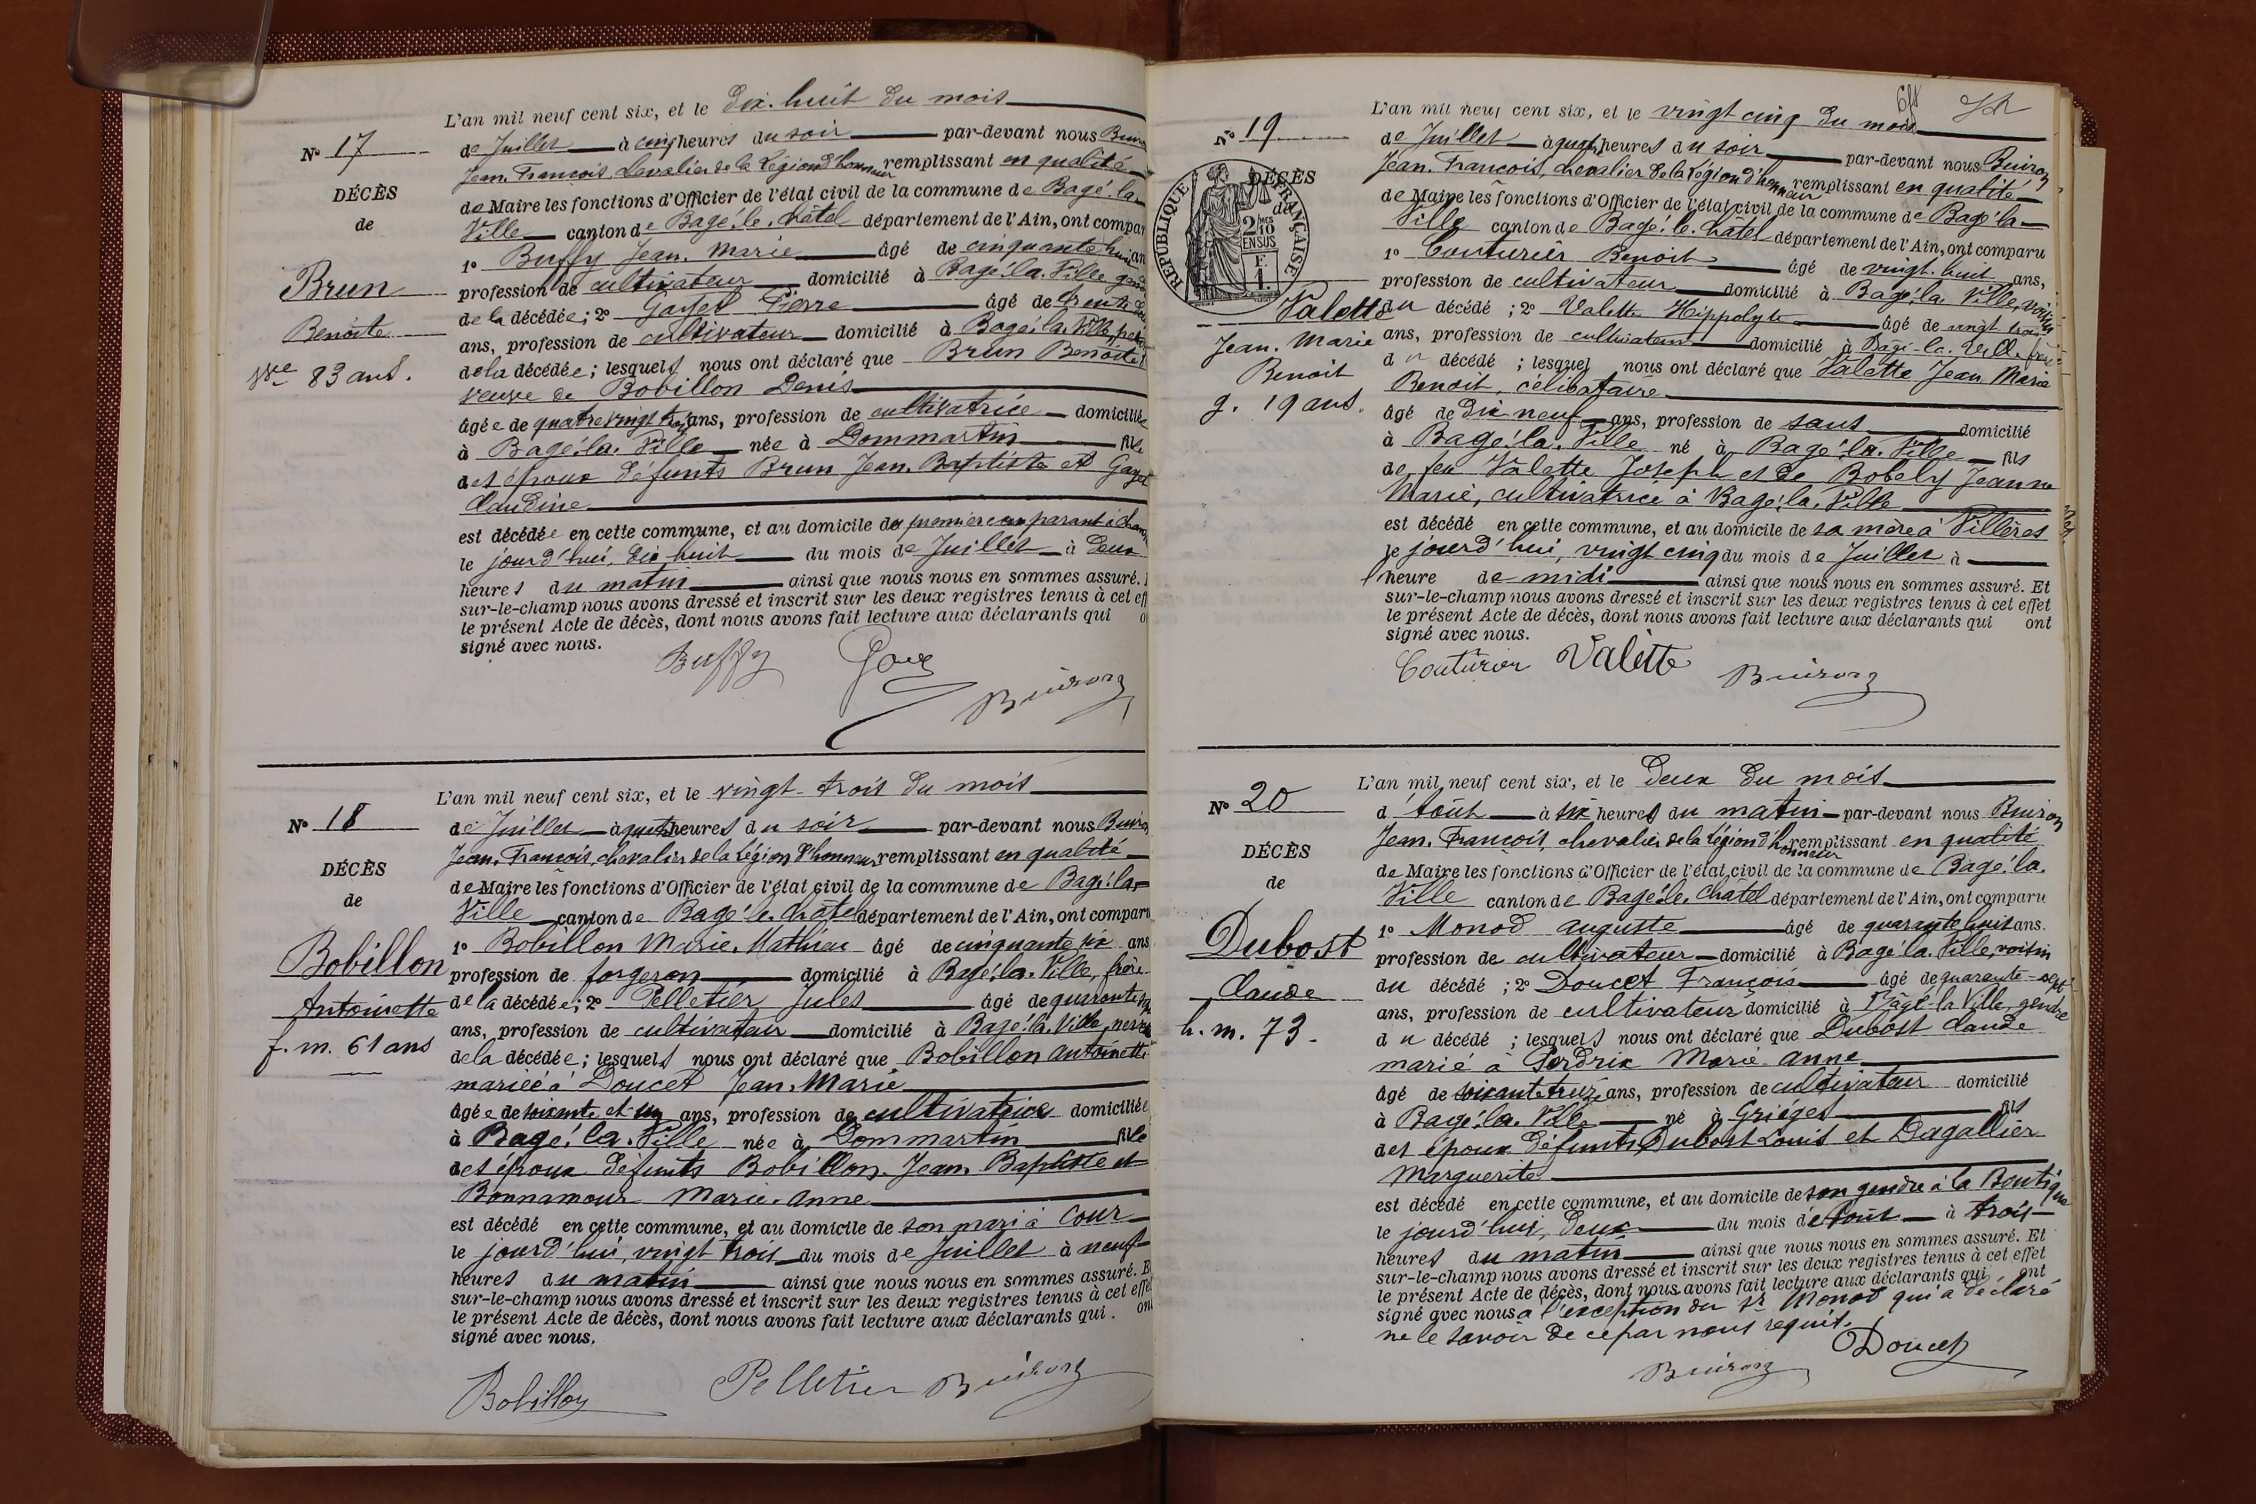 L'an mil neuf cent six, et le dix-huit du mois
N° 17
de Juillet à cinq heures du soir par-devant nous Buiron
Jean, François, chevalier de la Légion d'honneur remplissant en qualité
DÉCÈS
de Maire les fonctions d'Officier de l'état civil de la commune de Bagé-la-
de
Ville canton de Bagé-le-Châtel département de l'Ain, ont compar
1° Buffy Jean-Marie âgé de cinquante huit an
Brun
profession de cultivateur domicilié à Bagé-la-Ville gendre
Benoite
de la décédée; 2° Gayet Pierre âgé de trente
ans, profession de cultivateur domicilié à Bagé-la-Ville
vve 83 ans.
de la décédée; lesquels nous ont déclaré que Brun Benoite
veuve de Bobillon Denis
âgée de quatre vingt trois ans, profession de cultivatrice domiciliée
à Bagé-la-Ville née à Dommartin fille
des époux défunts Brun Jean-Baptiste et Gayet
Claudine
est décédée en cette commune, et au domicile du premier comparant à
le jourd'hui, dix huit du mois de Juillet à deux
heures du matin ainsi que nous nous en sommes assuré.
sur-le-champ nous avons dressé et inscrit sur les deux registres tenus à cet eff
le présent Acte de décès, dont nous avons fait lecture aux déclarants qui o
signé avec nous.
Buffy Gayet
Buiron
L'an mil neuf cent six, et le vingt-trois du mois
N° 18
de Juillet à quatre heures du soir par-devant nous Buiron
Jean-François, chevalier de la Légion d'honneur remplissant en qualité
DÉCÈS
de Maire les fonctions d'Officier de l'état civil de la commune de Bagé-la-
de
Ville canton de Bagé-le-Châtel département de l'Ain, ont comparu
Bobillon
1° Bobillon Marie-Mathieu âgé de cinquante six ans
profession de forgeron domicilié à Bagé-la-Ville, frère
Antoinette
de la décédée; 2° Pelletier Jules âgé de quarante
ans, profession de cultivateur domicilié à Bagé-la-Ville, neveu
f. m. 61 ans
de la décédée; lesquels nous ont déclaré que Bobillon Antoinette
mariée à Doucet Jean-Marie
âgée de soixante et un ans, profession de cultivatrice domiciliée
à Bagé-la-Ville née à Dommartin fille
des époux défunts Bobillon Jean Baptiste et
Bonnamour Marie-Anne
est décédé en cette commune, et au domicile de son mari à Cour
le jourd'hui, vingt trois du mois de Juillet à neuf
heures du matin ainsi que nous nous en sommes assuré. E
sur-le-champ nous avons dressé et inscrit sur les deux registres tenus à cet effet
le présent Acte de décès, dont nous avons fait lecture aux déclarants qui ont
signé avec nous.
Bobillon Pelletier Buiron
L'an mil neuf cent six, et le vingt cinq du mois
N° 19
de Juillet à quatre heures du soir par-devant nous Buiron
Jean-François, chevalier de la Légion d'honneur remplissant en qualité
DÉCÈS
de Maire les fonctions d'Officier de l'état civil de la commune de Bagé-la-
de
REPUBLIQUE FRANÇAISE
2 MES
10
EN SUS
F.
1.
Ville canton de Bagé-le-Châtel département de l'Ain, ont comparu
1° Couturier Benoit âgé de vingt-huit ans,
profession de cultivateur domicilié à Bagé-la-Ville, voisin
Valette
du décédé; 2° Valette Hippolyte âgé de vingt trois
Jean-Marie
ans, profession de cultivateur domicilié à Bagé-la-Ville, frère
Benoit
du décédé; lesquel nous ont déclaré que Valette Jean Marie
Benoit, célibataire
g. 19 ans.
âgé de dix neuf ans, profession de sans domicilié
à Bagé-la-Ville né à Bagé-la-Ville fils
de feu Valette Joseph et de Bobely Jeanne
Marie, cultivatrice à Bagé-la-Ville
est décédé en cette commune, et au domicile de sa mère à Villères
le jourd'hui, vingt cinq du mois de Juillet à
l'heure de midi ainsi que nous nous en sommes assuré. Et
sur-le-champ nous avons dressé et inscrit sur les deux registres tenus à cet effet
le présent Acte de décès, dont nous avons fait lecture aux déclarants qui ont
signé avec nous.
Couturier Valette Buiron
L'an mil neuf cent six, et le deux du mois
N° 20
d'Août à six heures du matin par-devant nous Buiron
Jean-François, chevalier de la Légion d'honneur remplissant en qualité
DÉCÈS
de Maire les fonctions d'Officier de l'état civil de la commune de Bagé-la-
de
Ville canton de Bagé-le-Châtel département de l'Ain, ont comparu
1° Monod Auguste âgé de quarante huit ans.
Dubost
profession de cultivateur domicilié à Bagé-la-Ville, voisin
Claude
du décédé; 2° Doucet François âgé de quarante-sept
ans, profession de cultivateur domicilié à Bâgé-la-Ville, gendre
h. m. 73.
du décédé; lesquels nous ont déclaré que Dubost Claude
marié à Perdrix Marie-Anne
âgé de soixante treize ans, profession de cultivateur domicilié
à Bagé-la-Ville né à Griéges fils
des époux défunts Dubost Louis et Dagallier
Marguerite
est décédé en cette commune, et au domicile de son gendre à la Boutique
le jourd'hui, deux du mois d'Août à trois
heures du matin ainsi que nous nous en sommes assuré. Et
sur-le-champ nous avons dressé et inscrit sur les deux registres tenus à cet effet
le présent Acte de décès, dont nous avons fait lecture aux déclarants qui ont
signé avec nous à l'exception du Sr Monod qui a déclaré
ne le savoir de ce par nous requit.
Buiron Doucet